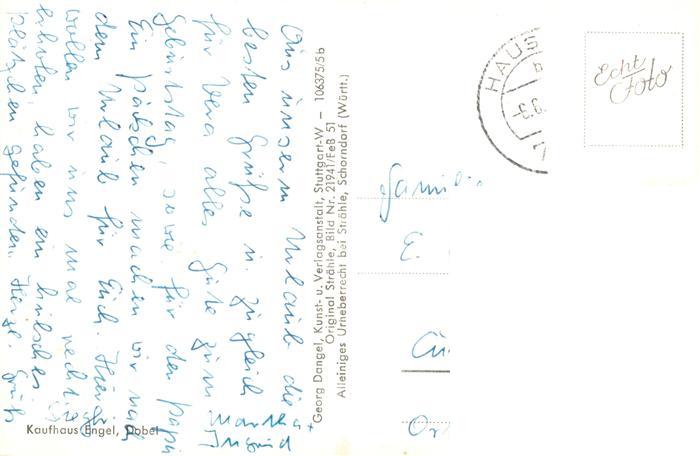 Aus unserm Urlaub die
besten Grüße u. zugleich
für Vera alles Gute zum
Geburtstag, sowie für den Papi
Ein Päckchen machen wir nach
dem Urlaub für Euch.
wollen wir uns mal recht
erholen, haben ein hübsches
Plätzchen gefunden. Herzl. Grüße
Martha +
Ingrid
Kaufhaus Engel, Dobel
Georg Dangel, Kunst- u. Verlagsanstalt, Stuttgart-W – 106375/5b
Original Strähle, Bild Nr. 21941/FeB 51
Alleiniges Urheberrecht bei Strähle, Schorndorf (Württ.)
HAUS
Echt
Foto
Famili
E.